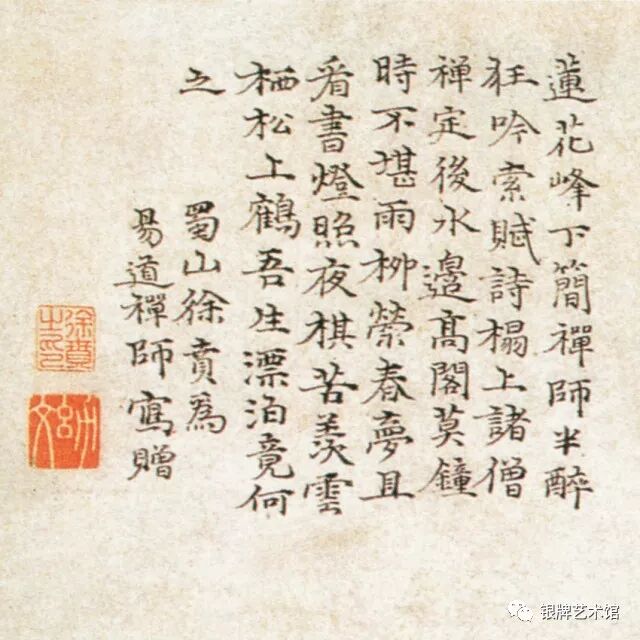 蓮花峰下簡禪師半醉
狂吟索賦詩榻上諸僧
禅定後水邉髙閣莫鐘
時不堪雨柳縈春夢且
看書燈照夜棋苦羨雲
栖松上鶴吾生漂泊竟何
之 蜀山徐賁爲
易道禪師寫贈
徐賁之印
幼文
银牌艺术馆